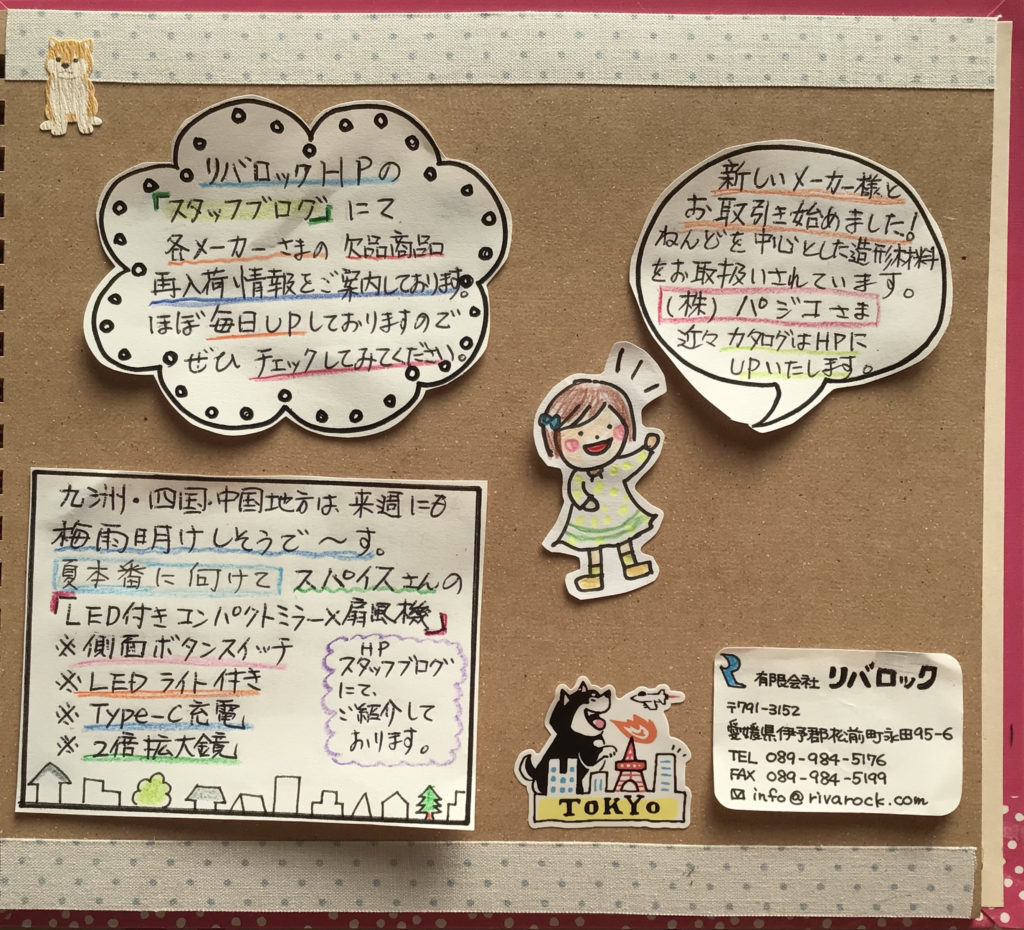 リバロックHPの
「スタッフブログ」にて
各メーカーさまの欠品商品
再入荷情報をご案内しております。
ほぼ毎日UPしておりますので
ぜひチェックしてみてください。
新しいメーカー様と
お取引き始めました!
ねんどを中心とした造形材料
をお取扱いされています。
(株)パジコさま
近々カタログはHPに
UPいたします。
九洲・四国・中国地方は来週にも
梅雨明けしそうで〜す。
夏本番に向けてスパイスさんの
「LED付きコンパクトミラー×扇風機」
※側面ボタンスイッチ
※LEDライト付き
※Type-C充電
※2倍拡大鏡
HP
スタッフブログ
にて、
ご紹介して
おります。
TOKYO
有限会社 リバロック
〒791-3152
愛媛県伊予郡松前町永田95-6
TEL 089-984-5176
FAX 089-984-5199
✉ info@rivarock.com